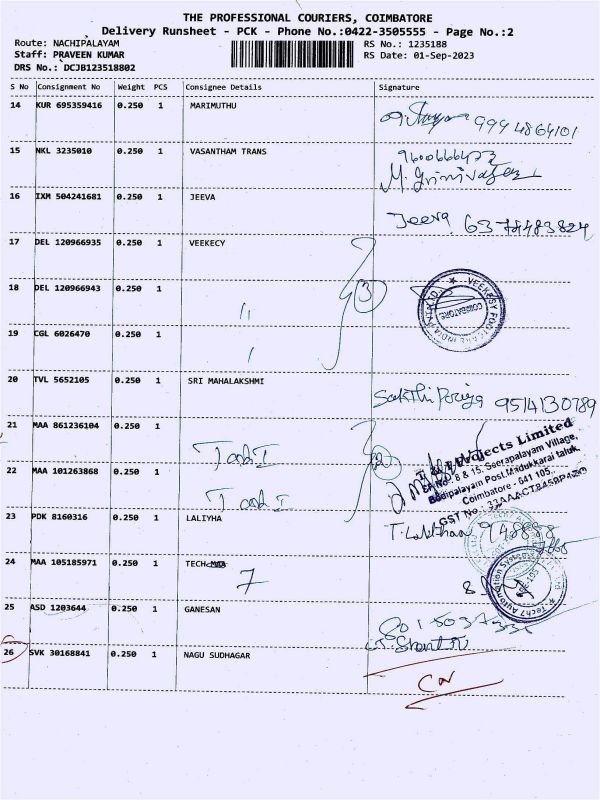 THE PROFESSIONAL COURIERS, COIMBATORE
Delivery Runsheet - PCK - Phone No.:0422-3505555 - Page No.:2
Route: NACHIPALAYAM RS No.: 1235188
Staff: PRAVEEN KUMAR RS Date: 01-Sep-2023
DRS No.: DCJB123518802
S No Consignment No Weight PCS Consignee Details Signature
14 KUR 695359416 0.250 1 MARIMUTHU
9994864101
15 NKL 3235010 0.250 1 VASANTHAM TRANS
M.
16 IXM 504241681 0.250 1 JEEVA
Jeeva.
17 DEL 120966935 0.250 1 VEEKECY
18 DEL 120966943 0.250 1 " 3
VEEKESY
COIMBATORE
19 CGL 6026470 0.250 1
20 TVL 5652105 0.250 1 SRI MAHALAKSHMI
9514130789
21 MAA 861236104 0.250 1 T and I
Projects Limited
SF No. 8 & 15, Seerapalayam Village,
Bodipalayam Post, Madukkarai taluk,
Coimbatore - 641 105.
GST No.
22 MAA 101263868 0.250 1 T and I 2
23 PDK 8160316 0.250 1 LALIYHA
24 MAA 105185971 0.250 1 TECH 7
Tech7 Automation
25 ASD 1203644 0.250 1 GANESAN
26 SVK 30168841 0.250 1 NAGU SUDHAGAR